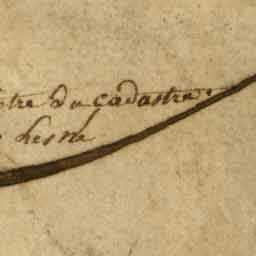 etre du cadastre.
hesne